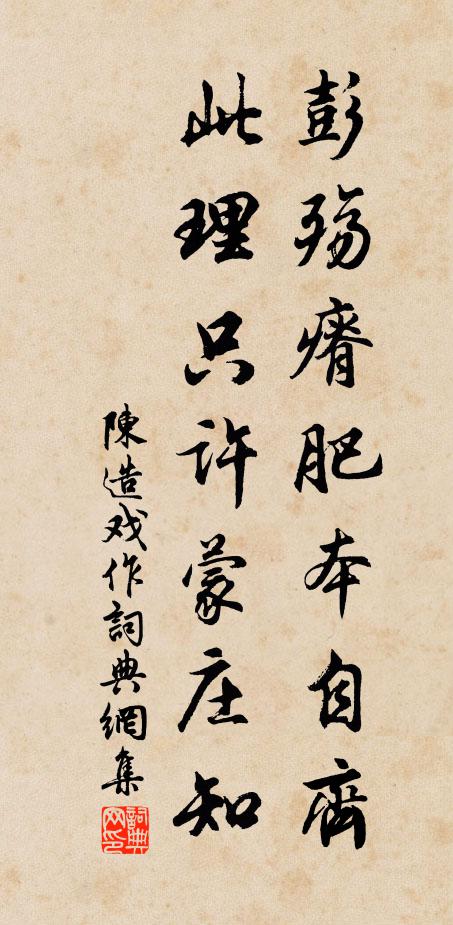 彭殇瘠肥本自齊
此理只许蒙庄知
陳造戏作詞典網集
詞典網印